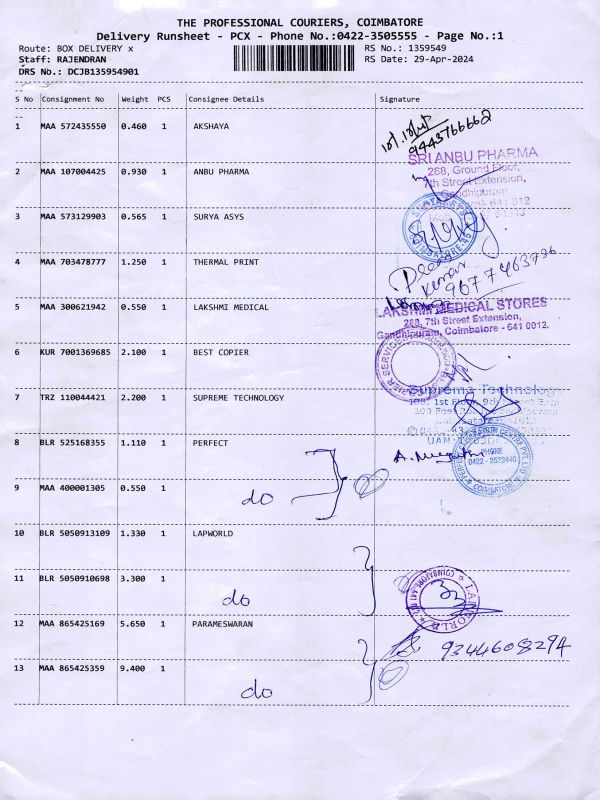 THE PROFESSIONAL COURIERS, COIMBATORE
Delivery Runsheet - PCX - Phone No.:0422-3505555 - Page No.:1
Route: BOX DELIVERY x RS No.: 1359549
Staff: RAJENDRAN RS Date: 29-Apr-2024
DRS No.: DCJB135954901
S No Consignment No Weight PCS Consignee Details Signature
1 MAA 572435550 0.460 1 AKSHAYA
9443766662
2 MAA 107004425 0.930 1 ANBU PHARMA
SRI ANBU PHARMA
268, Ground Floor,
7th Street Extension,
Gandhipuram
3 MAA 573129903 0.565 1 SURYA ASYS
4 MAA 703478777 1.250 1 THERMAL PRINT
Kumar
9677463796
5 MAA 300621942 0.550 1 LAKSHMI MEDICAL
LAKSHMI MEDICAL STORES
268, 7th Street Extension,
Gandhipuram, Coimbatore - 641 012.
6 KUR 7001369685 2.100 1 BEST COPIER
7 TRZ 110044421 2.200 1 SUPREME TECHNOLOGY
Supreme Technology
8 BLR 525168355 1.110 1 PERFECT
PHONE
0422 - 2522440
COIMBATORE
9 MAA 400001305 0.550 1
do
10 BLR 5050913109 1.330 1 LAPWORLD
11 BLR 5050910698 3.300 1
do
LAPWORLD
COIMBATORE-641
12 MAA 865425169 5.650 1 PARAMESWARAN
9344608294
13 MAA 865425359 9.400 1
do